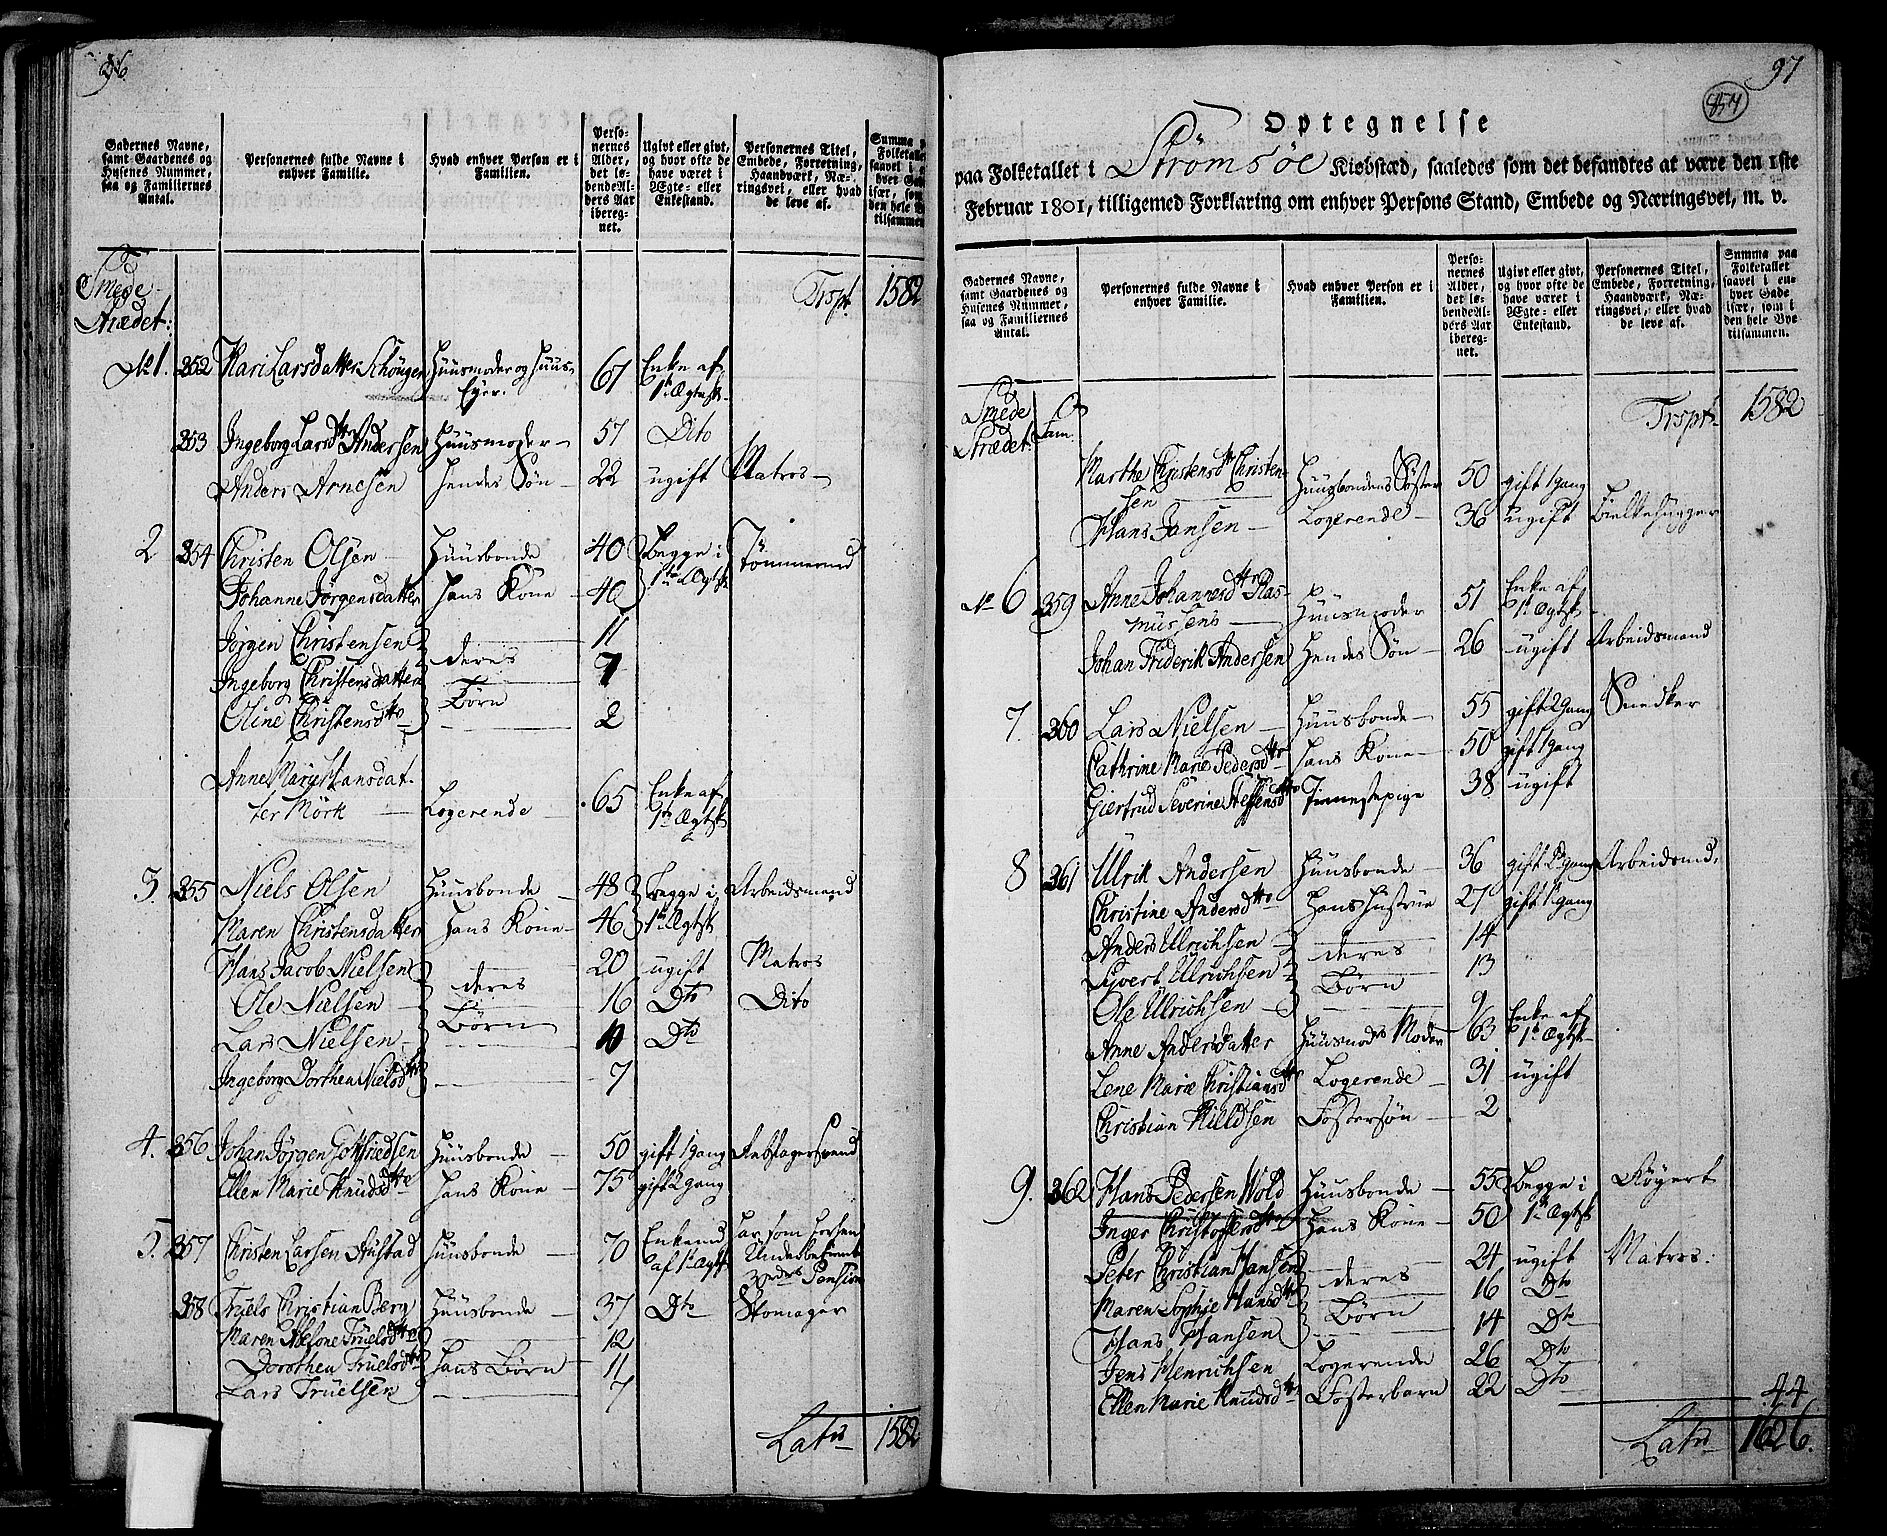 96.
Gadernes Navne, samt Gaardenes og Husenes Nummer, saa og Familiernes Antal.
Personernes fulde Navne i enhver Familie.
Hvad enhver Person er i Familien.
Personernes Alder, det løbende Alders Aar iberegnet.
Ugivt eller givt, og hvor ofte de have været i Ægte- eller Enkestand.
Personernes Titel, Embede, Forretning, Haandværk, Næringsvei, eller hvad de leve af.
Smede Strædet: Trsp. 1582
No 1. 352 Kari Larsdatter Schöugen Huusmoder og Huus-Eyer. 67 Enke af 1te Ægtesk.
353 Ingeborg Larsdtr Andersen Huusmoder 57 Dito
Anders Arnesen Hendes Søn 22 ugift Matros
2 354 Christen Olsen Huusbonde 40 Begge i 1te Ægtsk Tömmermd
Johanne Jörgensdatter Hans Kone 40
Jörgen Christensen deres Børn 11
Ingeborg Christensdatter 7
Oline Christensdtr 2
Anne Marie Hansdatter Mörk Logerende 65 Enke af 1te Ægtsk
3. 355 Niels Olsen Huusbonde 48 Begge i 1te Ægtsk Arbeidsmand
Maren Christensdatter Hans Kone 46
Hans Jacob Nielsen deres Børn 20 ugift Matros
Ole Nielsen 16 Dto Dito
Lars Nielsen 10 Dto
Ingeborg Dorthea Nielsdtr 7
4. 356 Johan Jörgen Gottfriedsen Huusbonde 50 gift 1 Gang
Ellen Marie Knudsdtr Hans Kone 75 gift 2 gang
5. 357 Christen Larsen Huusbonde 70 Enkemd af 1te Ægtsk Pension
358 Truels Christian Berg Huusbonde 37 Dto Skomager
Maren Truelsdtr 12
Dorothea Truelsdtr Hans Børn 11
Lars Truelsen 7
Lats 1582
97
854
Optegnelse
paa Folketallet i Strømsøe Kiøbstæd, saaledes som det befandtes at være den 1ste
Februar 1801, tilligemed Forklaring om enhver Persons Stand, Embede og Næringsvei, m. v.
Gadernes Navne, samt Gaardenes og Husenes Nummer, saa og Familiernes Antal.
Personernes fulde Navne i enhver Familie.
Hvad enhver Person er i Familien.
Personernes Alder, det løbende Alders Aar iberegnet.
Ugivt eller givt, og hvor ofte de have været i Ægte- eller Enkestand.
Personernes Titel, Embede, Forretning, Haandværk, Næringsvei, eller hvad de leve af.
Summa paa Folketallet saavel i enhver Gade især, som i den hele Bye tilsammen.
Smede Strædet Fam. Trspt 1582
Marthe Christensdtr Christensen Huusbondens Søster 50 gift 1 gang
Hans Jansen Logerende 36 ugift Bielkehugger
No 6 359 Anne Johannesdtr Rasmussens Huusmoder 51 Enke af 1te Ægtsk
Johan Friderik Andersen Hendes Søn 26 ugift Arbeidsmand
7. 360 Lars Nielsen Huusbonde 55 gift 2 Gang Snedker
Cathrine Marie Pedersdtr Hans Kone 50 gift 1 Gang
Giertrud Severine Steffensdtr Tienestepige 38 ugift
8 361 Ulrik Andersen Huusbonde 36 gift 2 gang Arbeidsmd.
Christine Andersdtr Hans Hustrue 27 gift 1 gang
Anders Ulrichsen deres Børn 14
Sivert Ulrichsen 13
Ole Ulrichsen 9
Anne Andersdatter Huusmodes Moder 63 Enke af 1te Ægtsk
Lene Marie Christiansdtr Logerende 31 ugift
Christian Kieldsen Fostersøn 2
9. 362 Hans Pedersen Wold Huusbonde 55 Begge i 1te Ægtsk Røgert
Inger Christoffersdtr Hans Kone 50
Peter Christian Hansen deres Børn 24 ugift Matros.
Maren Sophje Hansdtr 16 Dto
Hans Hansen 14 Dto
Jens Henrichsen Logerende 26 Dto
Ellen Marie Knudsdtr Fosterbarn 22 Dto
44
Lats 1626.